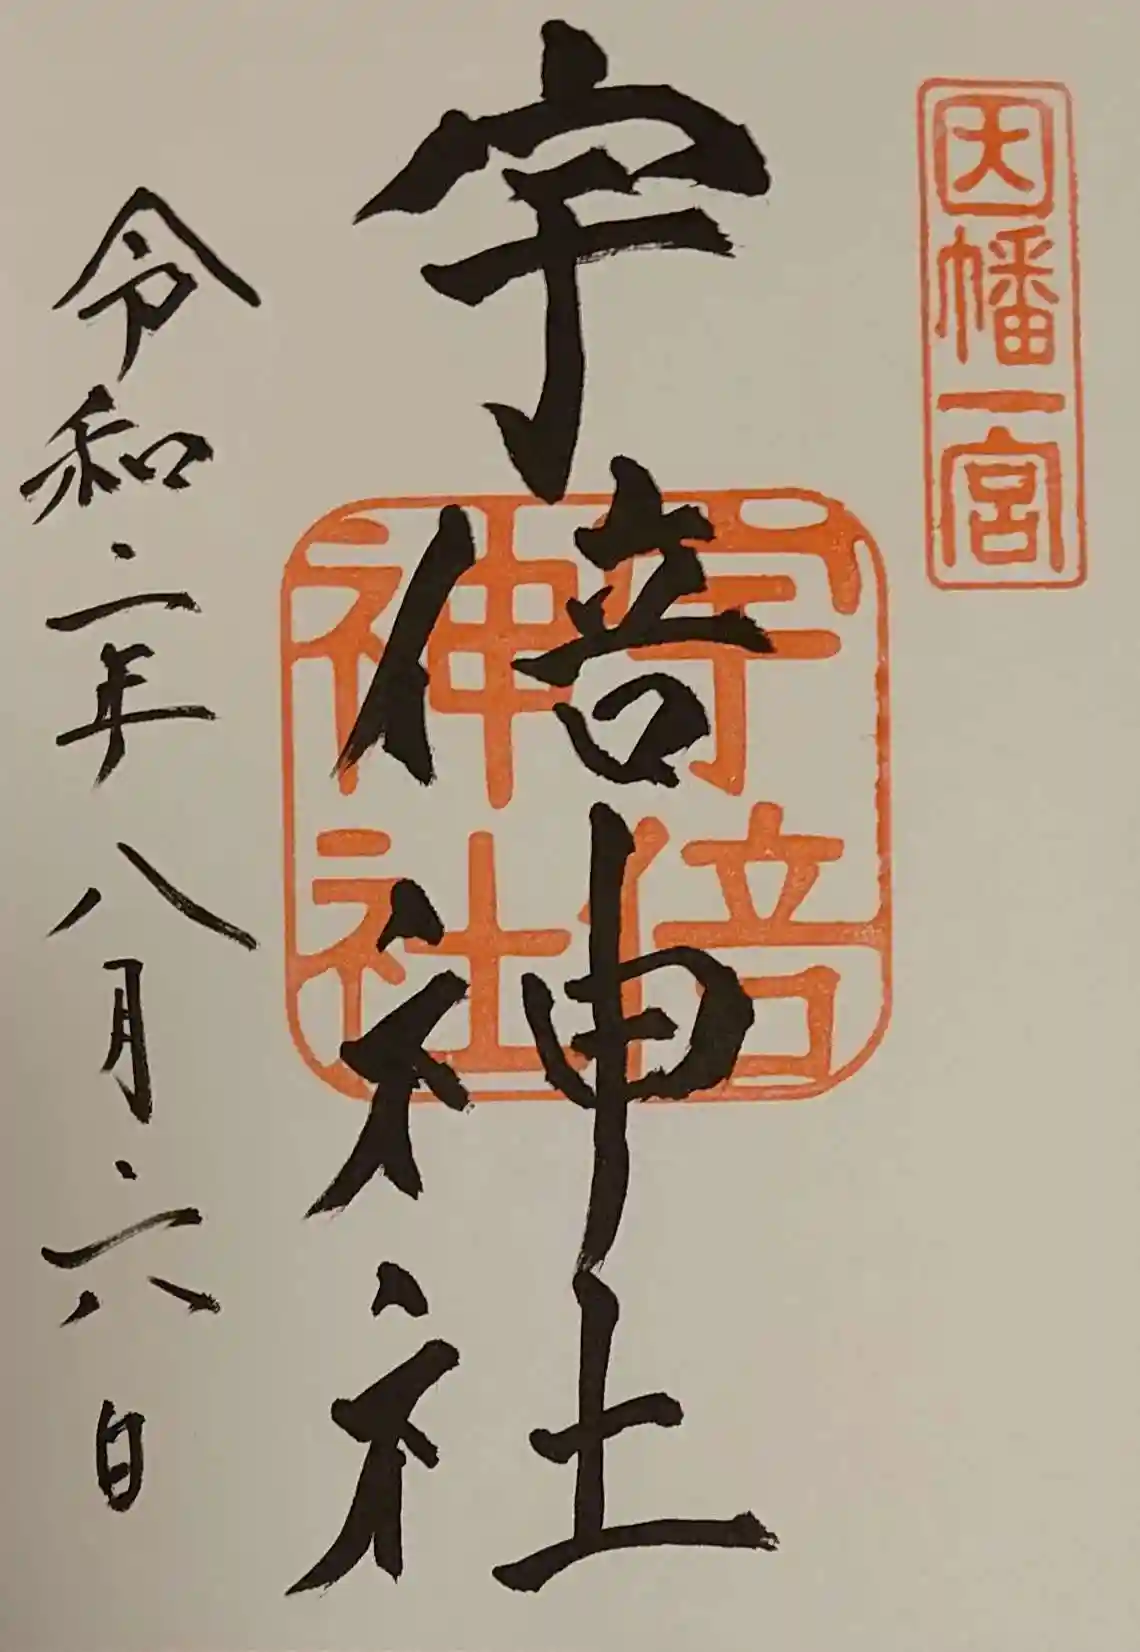 因幡一宮
宇倍神社
宇倍
神社
令和二年八月六日